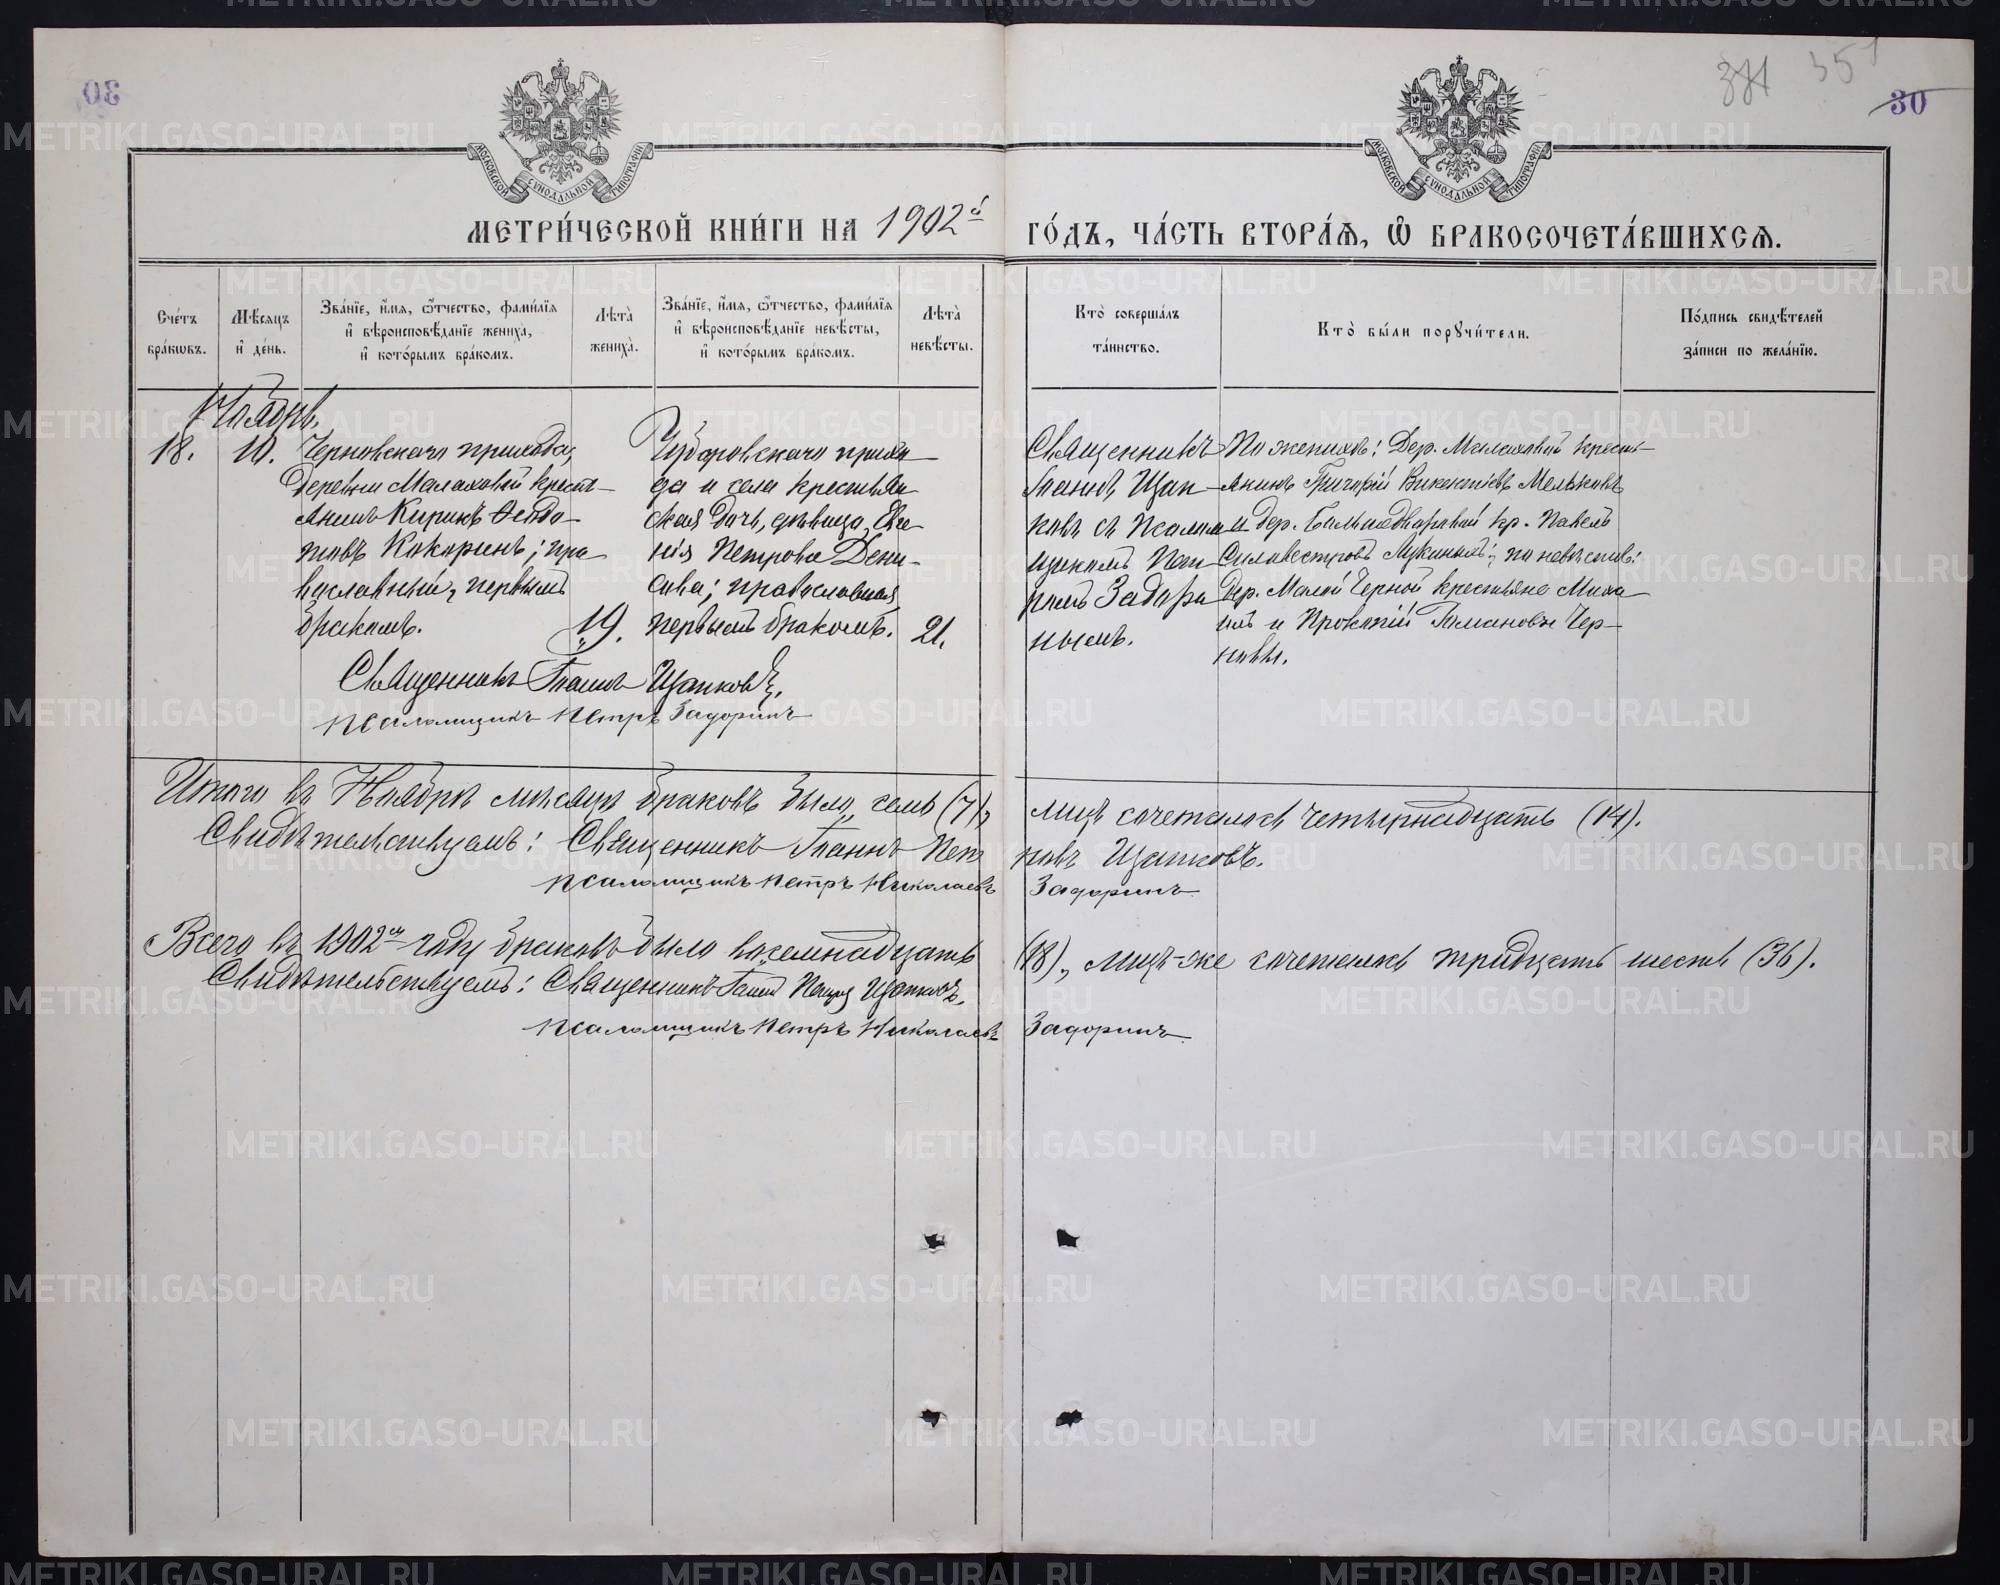 30
351
30
МОСКОВСКОЙ СѴНОДАЛЬНОЙ ТИПОГРАФІИ
МОСКОВСКОЙ СѴНОДАЛЬНОЙ ТИПОГРАФІИ
МЕТРИ́ЧЕСКОЙ КНИ́ГИ НА 1902й ГО́ДЪ, ЧА́СТЬ ВТОРА́Ѧ, Ѽ БРАКОСОЧЕТА́ВШИХСѦ.
Сче́тъ бра́кѡвъ.
Мѣ́сѧцъ и҆ де́нь.
Зва́нїе, и҆́мѧ, ѻ҆́тчество, фами́лїѧ и҆ вѣроисповѣ́данїе жениха̀, и҆ кото́рымъ бра́комъ.
Лѣта̀ жениха̀.
Зва́нїе, и҆́мѧ, ѻ҆́тчество, фами́лїѧ и҆ вѣроисповѣ́данїе невѣ́сты, и҆ кото́рымъ бра́комъ.
Лѣта̀ невѣ́сты.
Кто̀ соверша́лъ та́инство.
Кто̀ бы́ли порꙋчи́тели.
По́дпись свидѣ́телей за́писи по жела́нїю.
Ноябрь.
18.
10.
Черновскаго прихода,
деревни Малаховой кресть-
янинъ Киринъ
Кокоринъ; пра-
вославный, первымъ
бракомъ.
19.
Чубаровскаго прихо-
да и села крестьян-
ская дочь, дѣвица, Евге-
нія Петрова Дени-
сова; православная,
первымъ бракомъ.
21.
Священникъ
Іоаннъ Цап-
ковъ съ Псалом-
щикомъ Пет-
ромъ Задори-
нымъ.
По женихѣ: Дер. Малаховой кресть-
янинъ Григорій Викентіевъ Мельковъ
и дер. Большедворовой кр. Павелъ
Силивестровъ Лукиныхъ; по невѣстѣ:
Дер. Малой Черной крестьяне Миха-
илъ и Прокопій Романовы Чер-
новы.
Священникъ Іоаннъ Цапковъ.
псаломщикъ Петръ Задоринъ
Итого въ Ноябрѣ мѣсяцѣ браковъ было семь (7), лицъ сочеталось четырнадцать (14).
Свидѣтельствуемъ: Священникъ Іоаннъ Пет ровъ Цапковъ.
псаломщикъ Петръ Николаевъ Задоринъ
Всего въ 1902мъ году браковъ было восемнадцать (18), лицъ-же сочеталось тридцать шесть (36).
Свидѣтельствуемъ: Священникъ Іоаннъ Петровъ Цапковъ.
псаломщикъ Петръ Николаевъ Задоринъ
METRIKI.GASO-URAL.RU